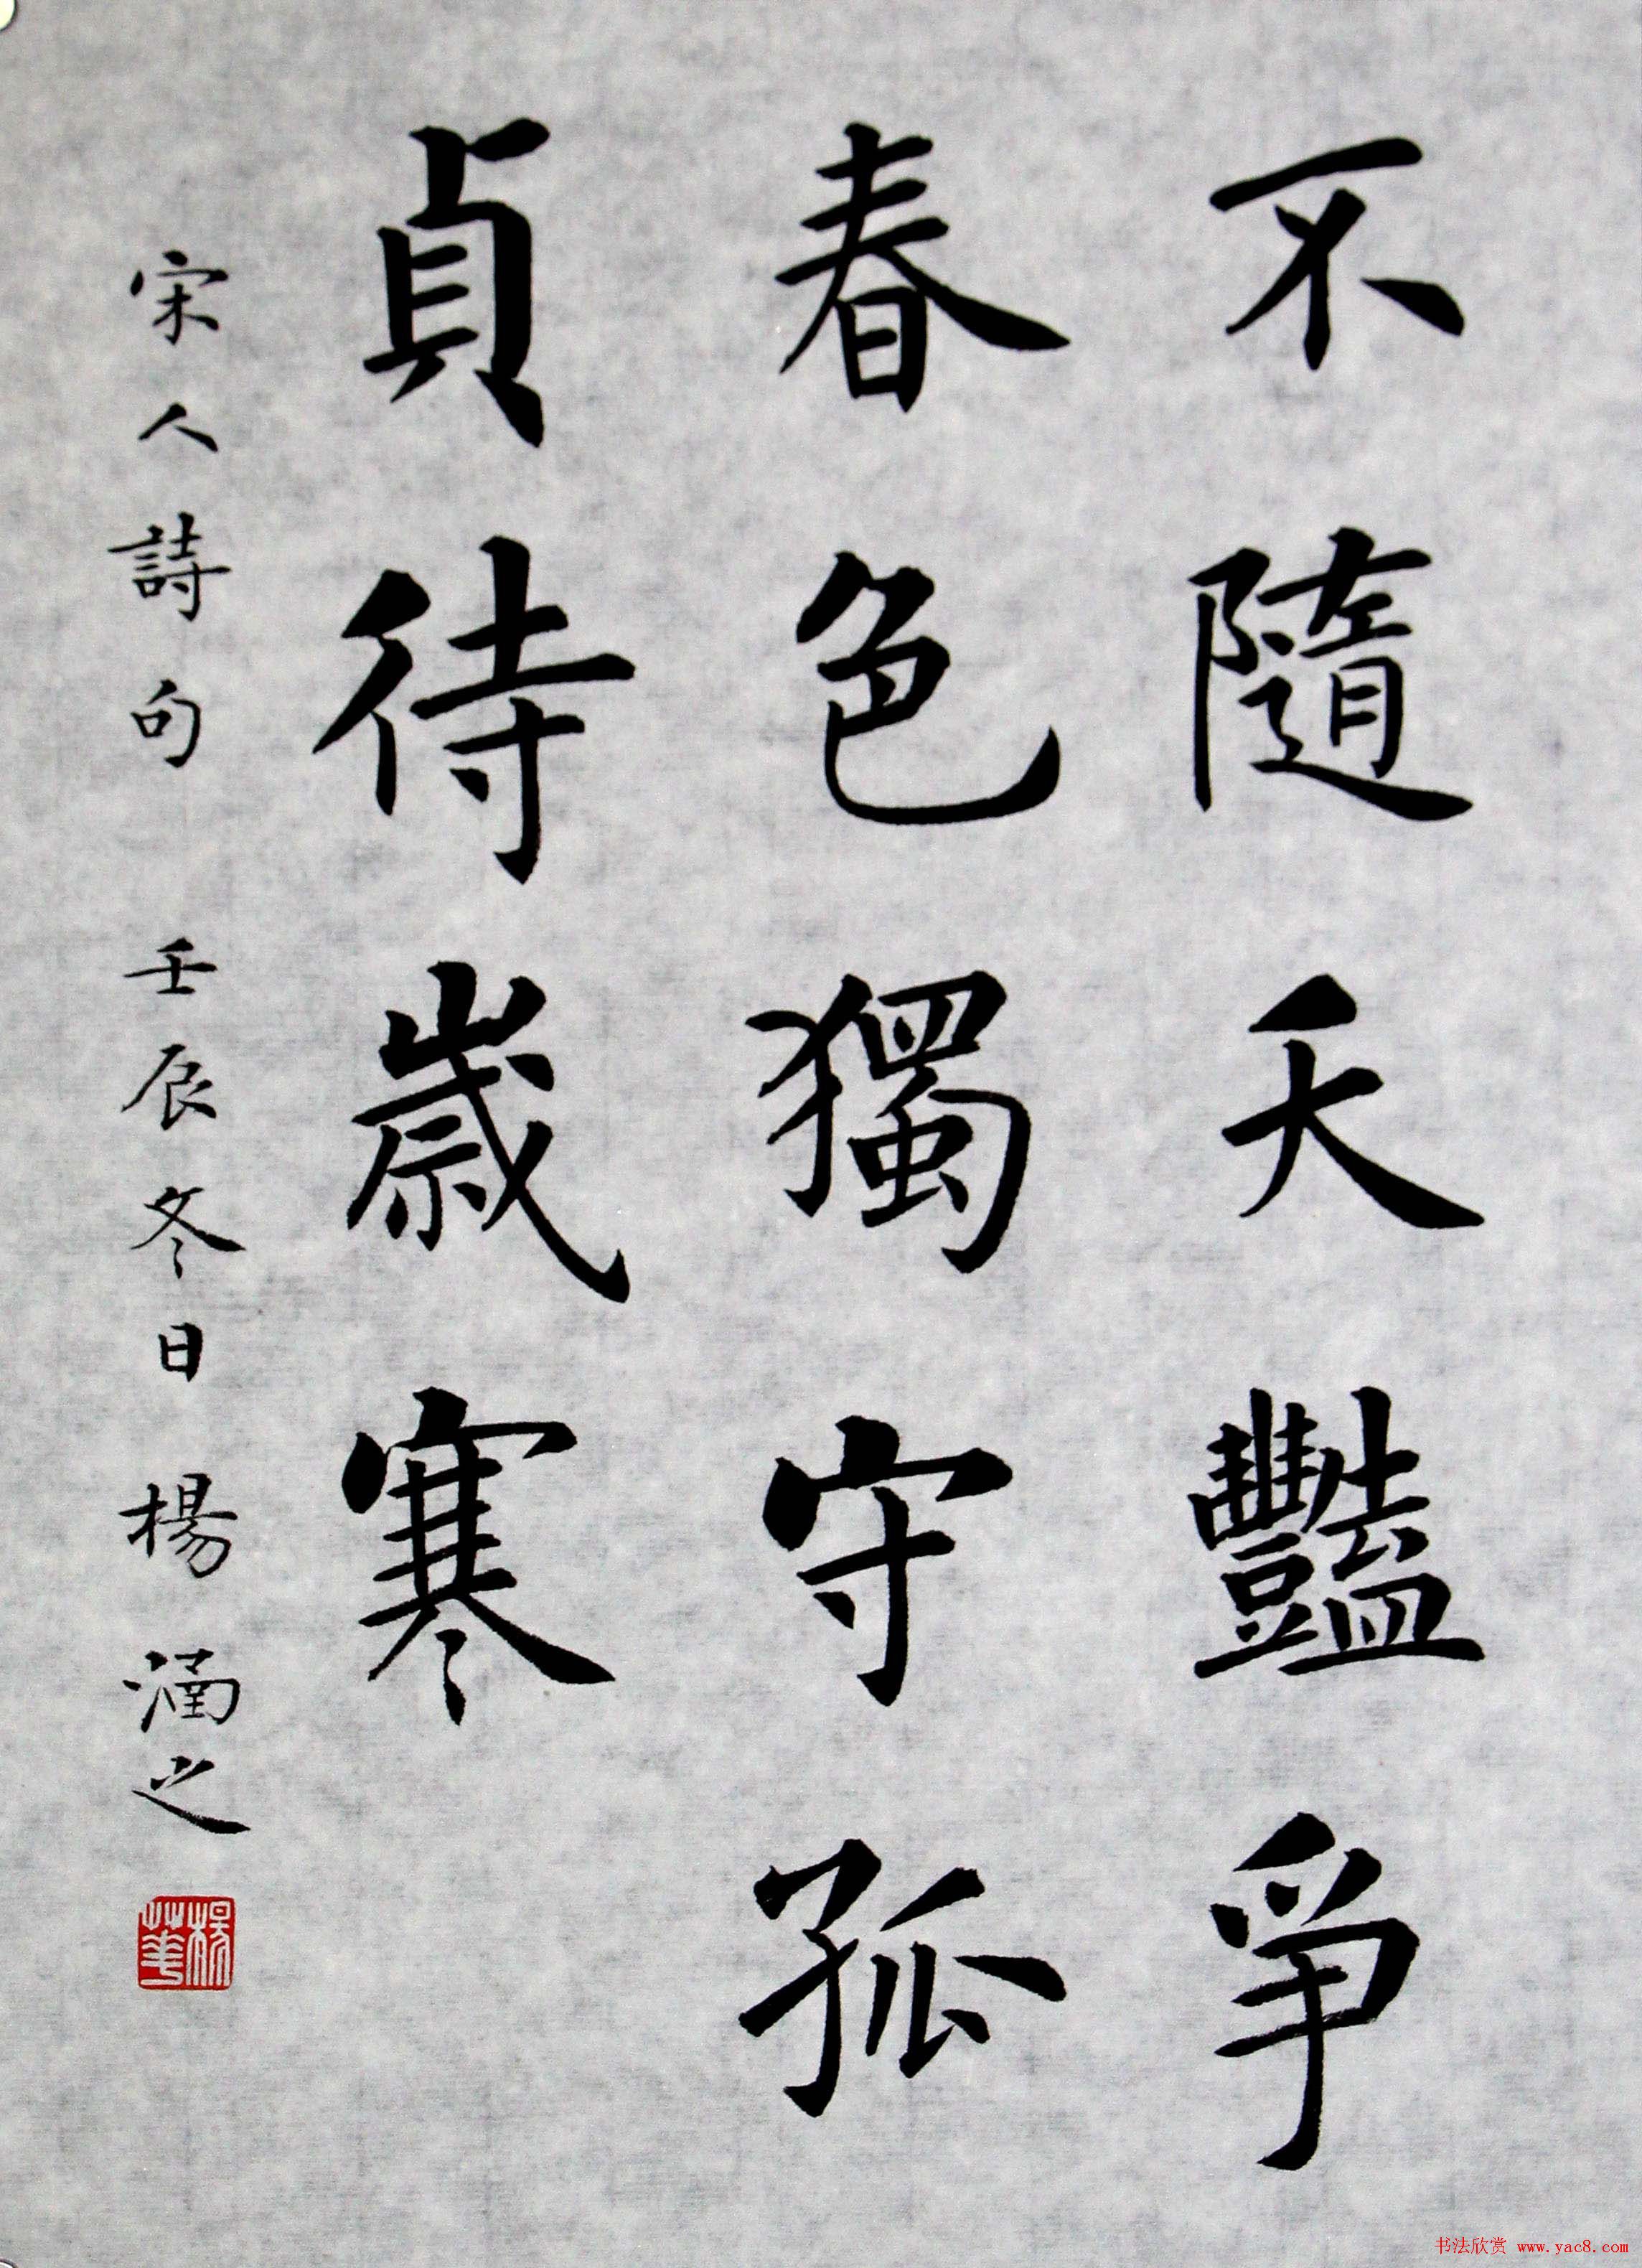 不隨夭豔爭
春色獨守孤
貞待歲寒
宋人詩句 壬辰冬日 楊涵之
楊華
书法欣赏 www.yac8.com